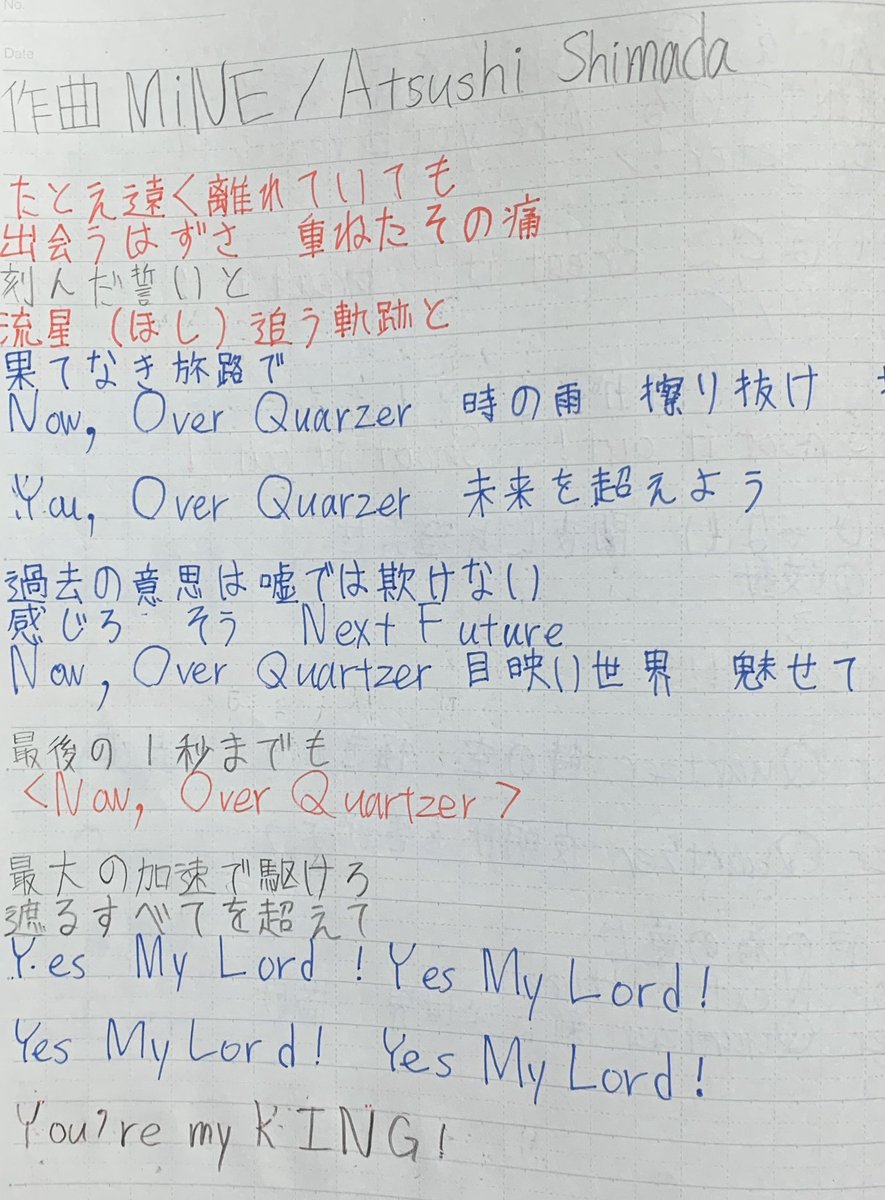 No.
Date
作曲 MiNE / Atsushi Shimada
たとえ遠く離れていても
出会うはずさ 重ねたその痛
刻んだ誓いと
流星(ほし)追う軌跡と
果てなき旅路で
Now, Over Quarzer 時の雨 擦り抜け
You, Over Quarzer 未来を超えよう
過去の意思は嘘では欺けない
感じろ そう Next Future
Now, Over Quartzer 目映い世界 魅せて
最後の1秒までも
<Now, Over Quartzer>
最大の加速で駆けろ
遮るすべてを超えて
Yes My Lord! Yes My Lord!
Yes My Lord! Yes My Lord!
You're my KING!